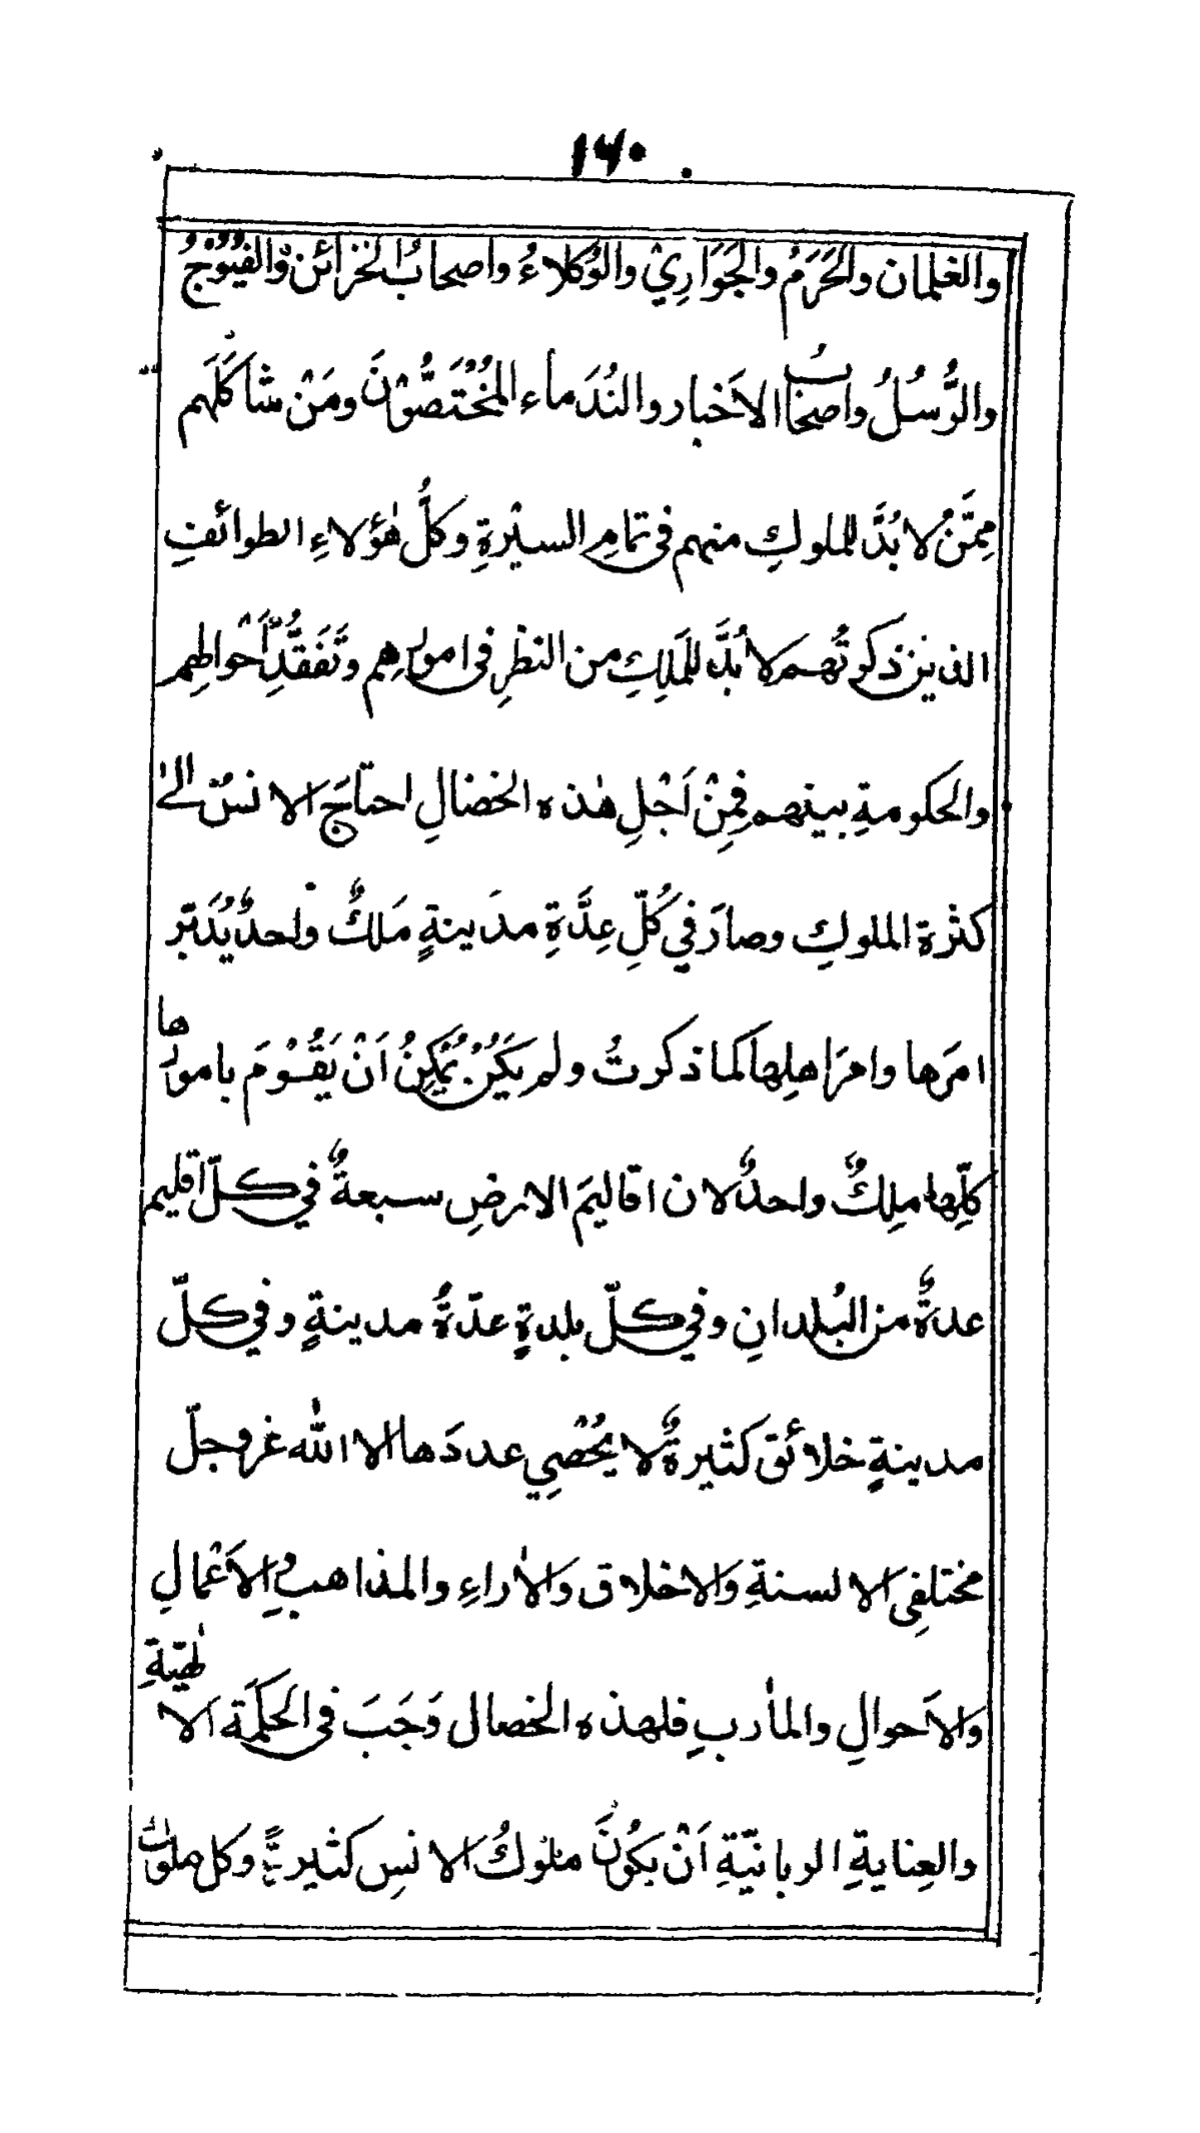 ١٦٠
والغلمان والحَرَمُ والجَوَارِيْ والوُكلاءُ واصحابُ الخزائن والفُيُوْجُ
والرُّسُلُ واصحابُ الاَخبار والنُدَماء المُخْتَصُّوْنَ ومَنْ شاكَلَهم
مِمَّنْ لا بُدَّ للملوكِ منهم في تمامِ السيْرةِ وكلُّ هٰؤلاءِ الطوائفِ
الذين ذكرتُهم لا بُدَّ للمَلِكِ من النظرِ في امورِهِم وتَفَقُّدِ اَحْوالِهم
والحكومةِ بينهم فمِنْ اَجْلِ هٰذه الخصالِ احتاجَ الانسُ الىٰ
كثْرة الملوكِ وصارَ في كُلِّ عِدَّةِ مدَينةٍ مَلكٌ واحدٌ يُدَبّر
امرَها وامرَ اهلِها كما ذكرتُ ولم يَكُنْ يُمْكِنُ اَنْ يَقُوْمَ بامورها
كلِّها ملِكٌ واحدٌ لان اقاليمَ الارضِ سبعةٌ في كلّ اقليم
عدةٌ من البُلدانِ وفي كلّ بلدةٍ عدّةُ مدينةٍ وفي كلّ
مدينةٍ خلائق كثيرةٌ لا يُحْصِي عددَها الا الله عز وجلّ
مختلفِي الالسنةِ والاخلاق والاٰراءِ والمذاهبِ والاَعْمالِ
والاَحوالِ والماٰربِ فلهذه الخصال وَجَبَ في الحكمَة الالٰهيّةِ
والعِنايةِ الربانيّةِ اَنْ يكُونَ ملوكُ الانسِ كثيرةً وكل ملوك